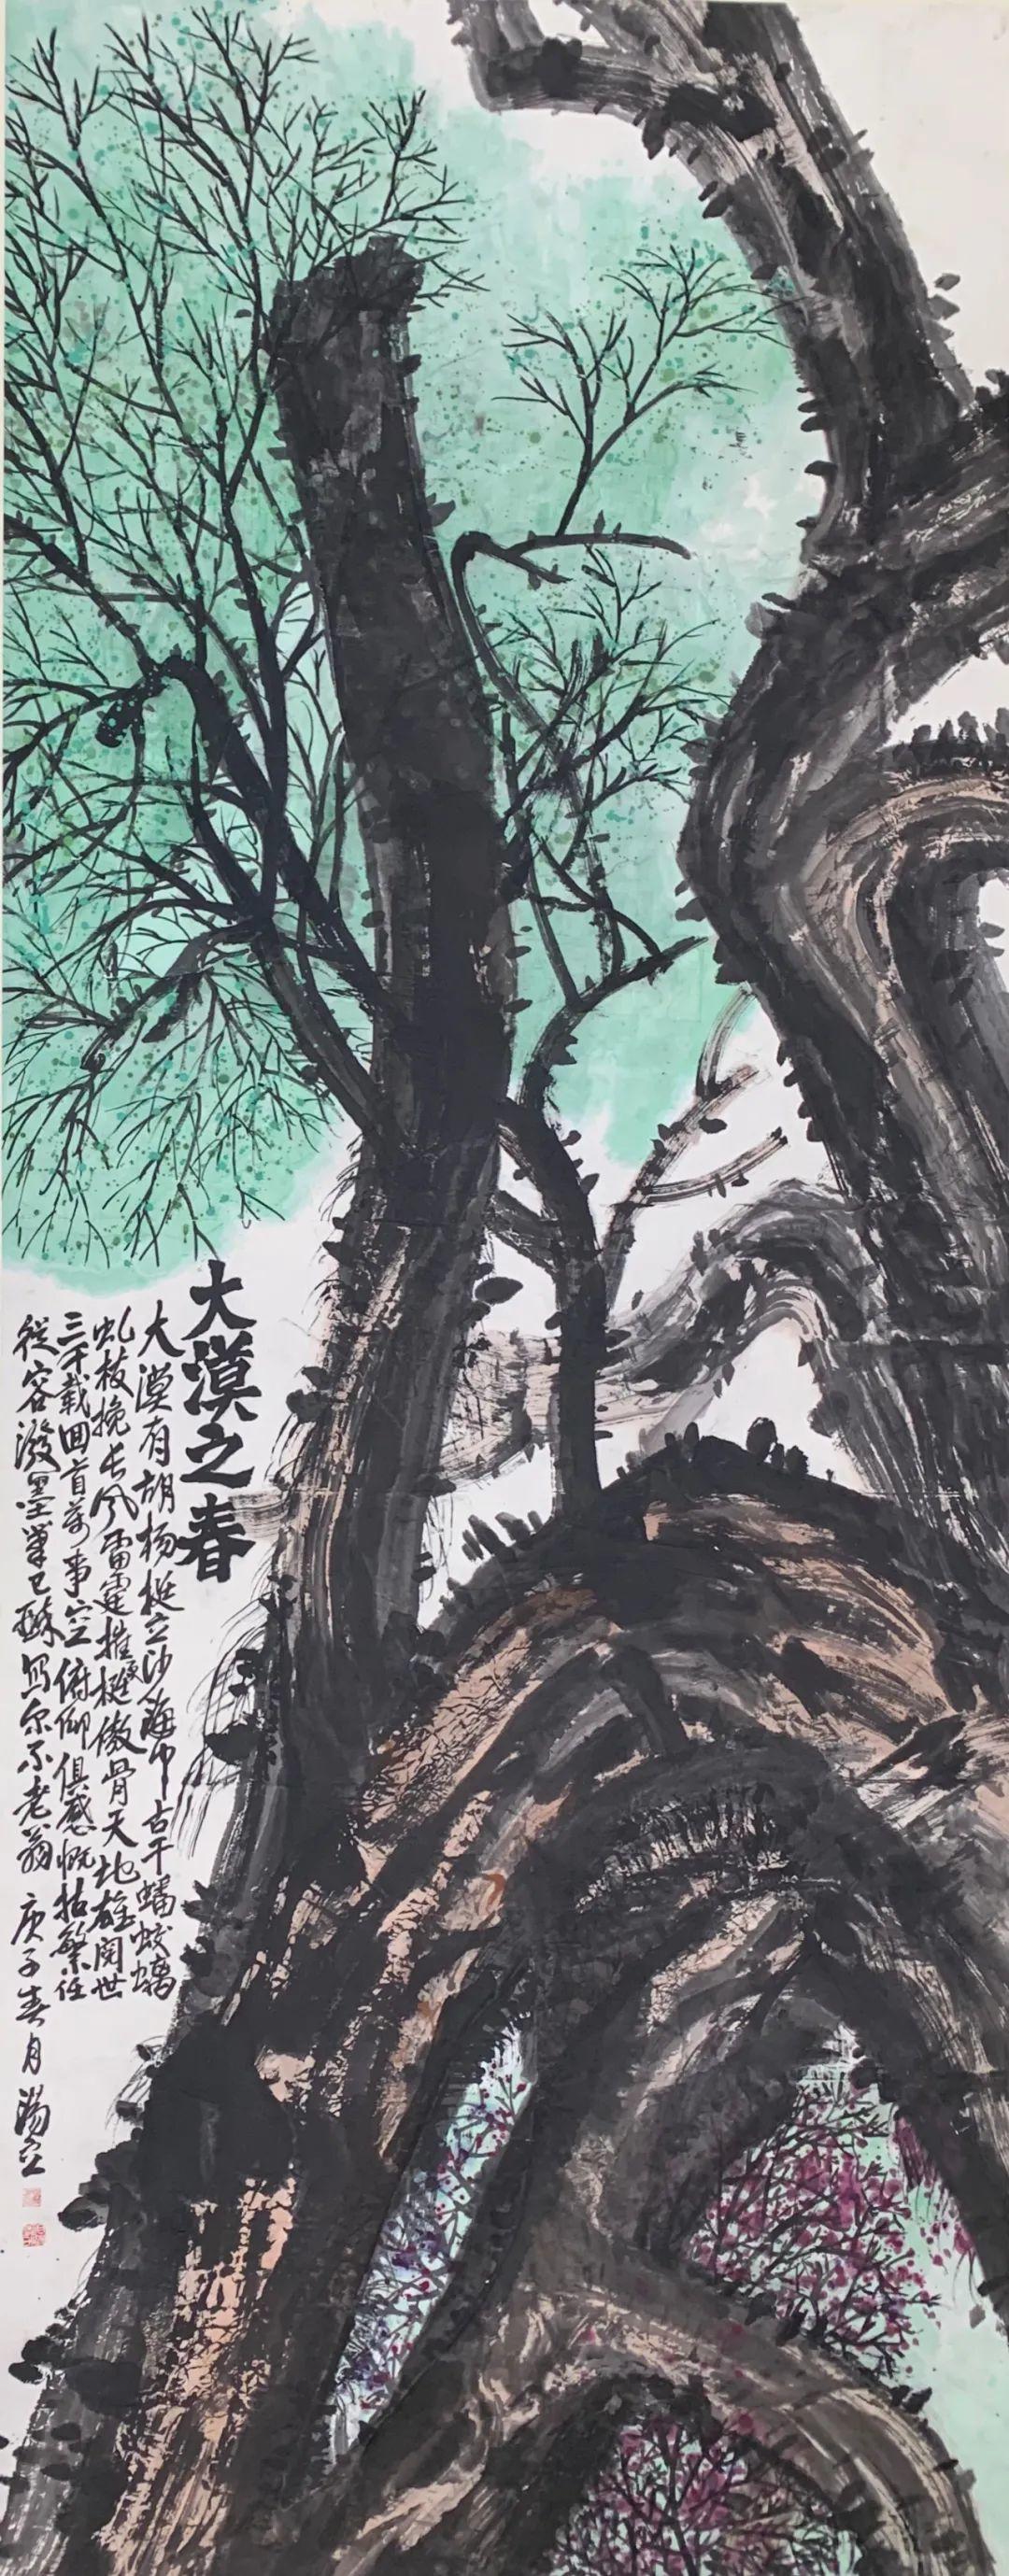 大漠之春
大漠有胡杨挺立沙海中古干蟠蛟螭
虬枝挽长风雷霆摧梃傲骨天地雄阅世
三千载回首万事空俯仰俱感慨枯繁任
從容潑墨笔已酣写尔不老翁 庚子春月 汤立